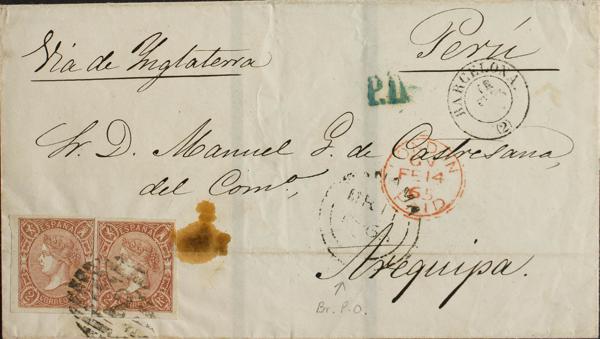 Via de Ynglaterra
Perú
P.D.
BARCELONA.
(2)
Sr. D. Manuel G. de Castresana,
del Comº,
PAID
FE 14
65
Arequipa.
ESPAÑA
CORREOS
ESPAÑA
Br. P.O.